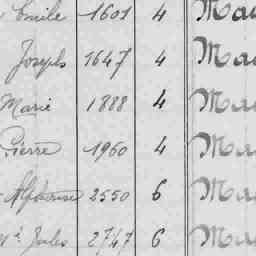 Emile 1601 4 Mac
Joseph 1647 4 Mac
Marie 1888 4 Mac
Pierre 1960 4 Mac
Alphonse 2550 6 Mac
Jules 2747 6 Mac